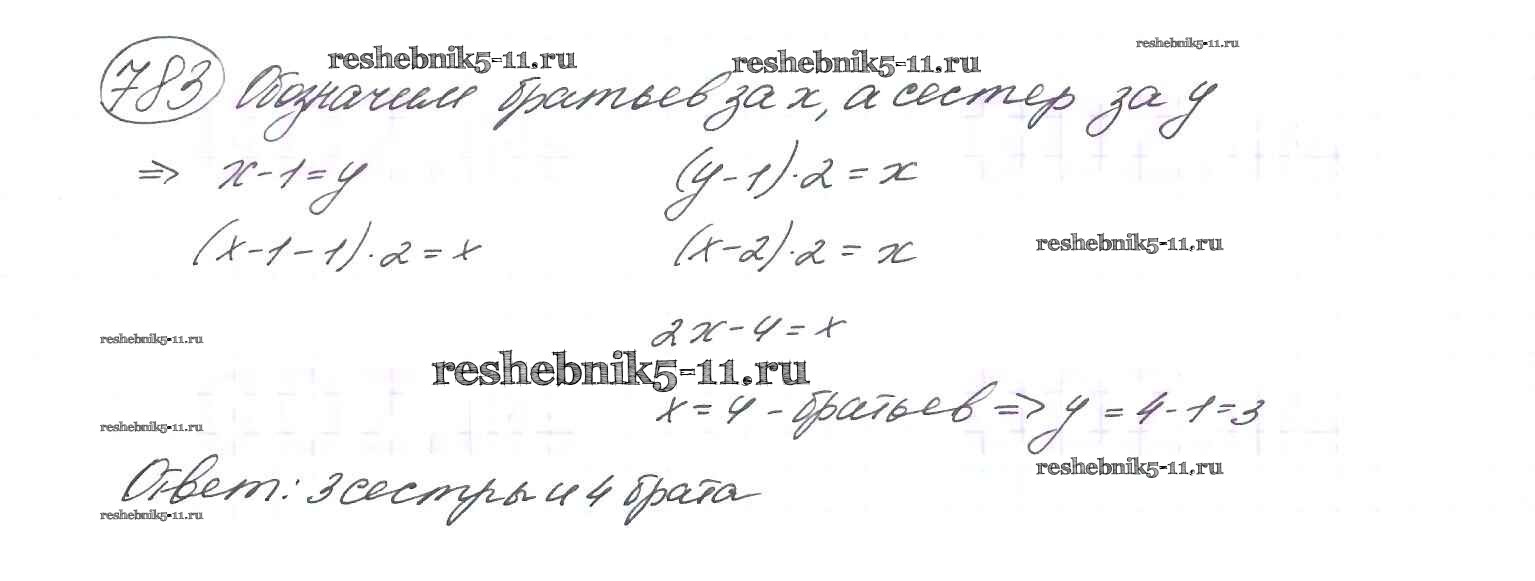 reshebnik5-11.ru reshebnik5-11.ru reshebnik5-11.ru
783 Обозначим братьев за x, а сестер за y
=> x-1=y (y-1)·2=x
(x-1-1)·2=x (x-2)·2=x reshebnik5-11.ru
reshebnik5-11.ru 2x-4=x
reshebnik5-11.ru
x=4-братьев => y=4-1=3
reshebnik5-11.ru
reshebnik5-11.ru
Ответ: 3 сестры и 4 брата
reshebnik5-11.ru